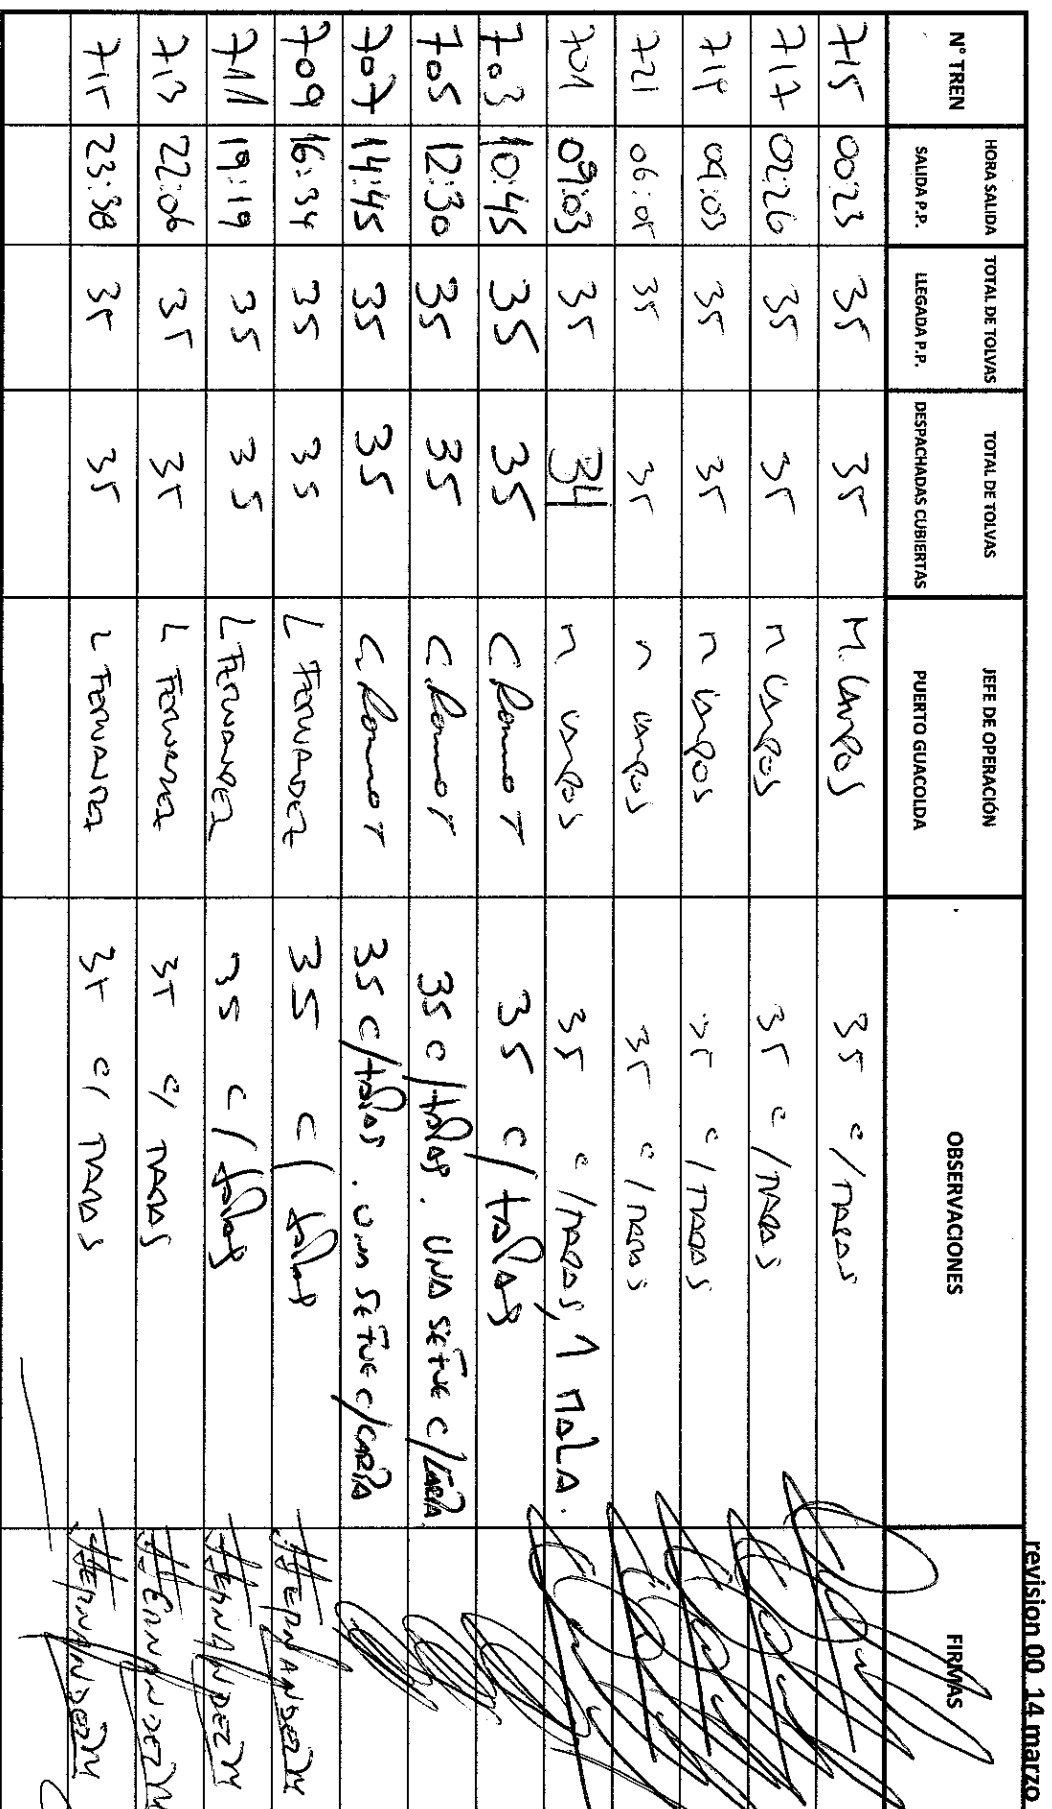 revision 00 14 marzo
N° TREN HORA SALIDA SALIDA P.P. TOTAL DE TOLVAS LLEGADA P.P. TOTAL DE TOLVAS DESPACHADAS CUBIERTAS JEFE DE OPERACIÓN PUERTO GUACOLDA OBSERVACIONES FIRMAS
715 00:23 35 35 M. CAMPOS 35 c/TAPAS
717 02:26 35 35 M CAMPOS 35 c/TAPAS
719 04:03 35 35 M CAMPOS 35 c/TAPAS
721 06:05 35 35 M CAMPOS 35 c/TAPAS
701 09:03 35 34 M CAMPOS 35 c/TAPAS, 1 MALA.
703 10:45 35 35 C. 35 c/tapas
705 12:30 35 35 C. 35 c/tapas. UNA SE FUE c/CARPA
707 14:45 35 35 C. 35 c/tapas. UNA SE FUE c/CARPA
709 16:34 35 35 L FERNANDEZ 35 c/tapas HERNANDEZ M
711 19:19 35 35 L FERNANDEZ 35 c/tapas HERNANDEZ M
713 22:06 35 35 L FERNANDEZ 35 c/TAPAS HERNANDEZ M
715 23:58 35 35 L FERNANDEZ 35 c/TAPAS HERNANDEZ M